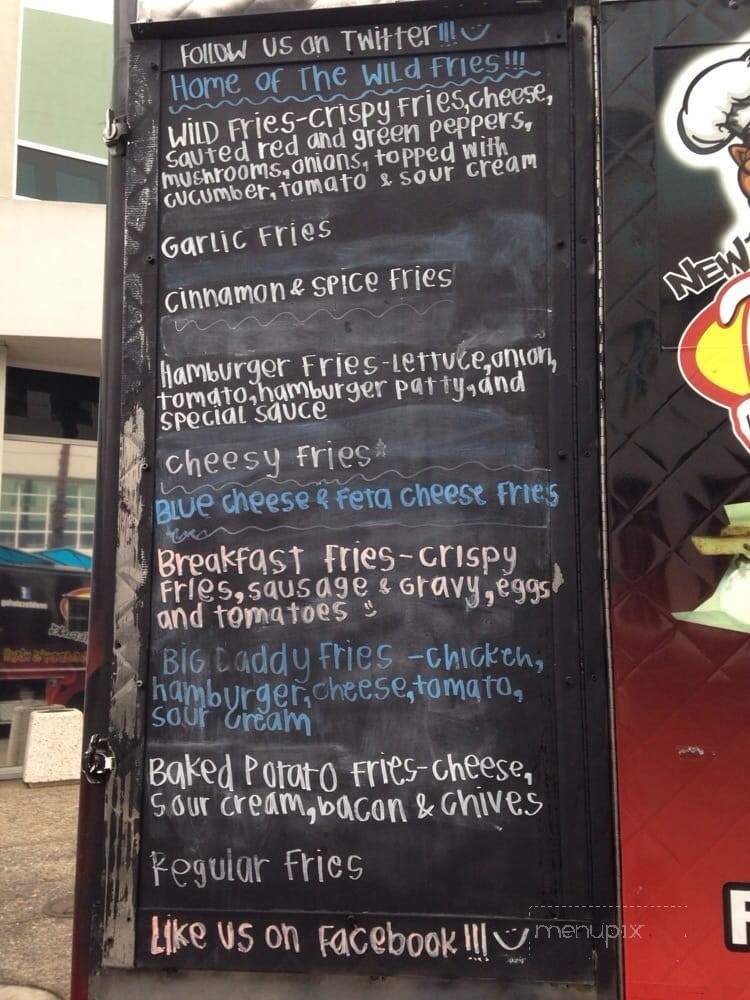 Follow us on Twitter!!!
Home of The Wild Fries!!!
Wild Fries-crispy fries,cheese,
sauted red and green peppers,
mushrooms,onions, topped with
cucumber,tomato & sour cream
Garlic Fries
cinnamon & spice fries
Hamburger Fries-Lettuce,onion,
tomato,hamburger patty,and
special sauce
Cheesy Fries
Blue cheese & Feta cheese Fries
Breakfast Fries-crispy
Fries,sausage & Gravy,eggs
and tomatoes
Big Daddy Fries -chicken,
hamburger,cheese,tomato,
sour cream
Baked Potato Fries-cheese,
sour cream,bacon & chives
Regular Fries
Like us on Facebook!!!
menupix
NEW
F